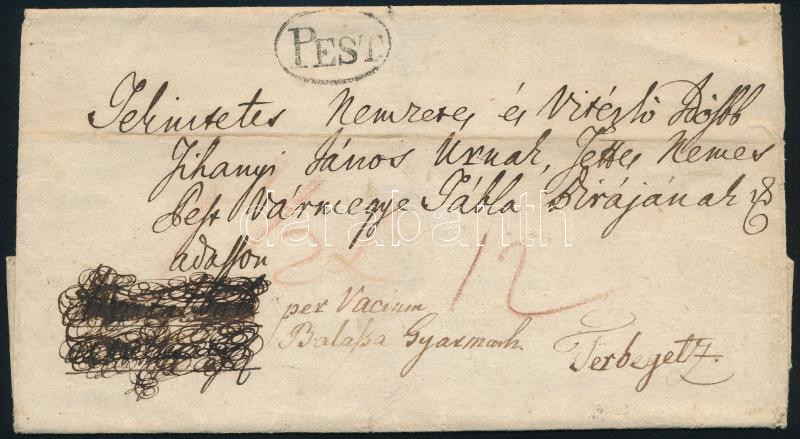 PEST
Tekintetes Nemzetes és Vitézlö Idősb
Tihanyi János Urnak, Tettes Nemes
Pest Vármegye Tábla Birájának
adasson
12
per Vacium
Balassa Gyarmath.
Terbegetz.
darabanth